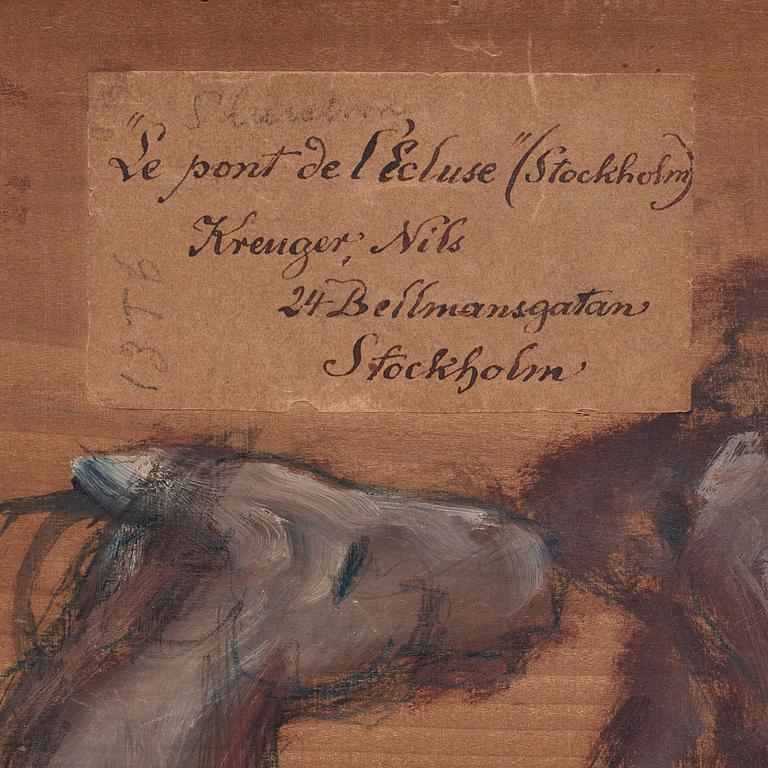 "Le pont de l'Écluse" (Stockholm)
Kreuger, Nils
24 Bellmansgatan
Stockholm
1376